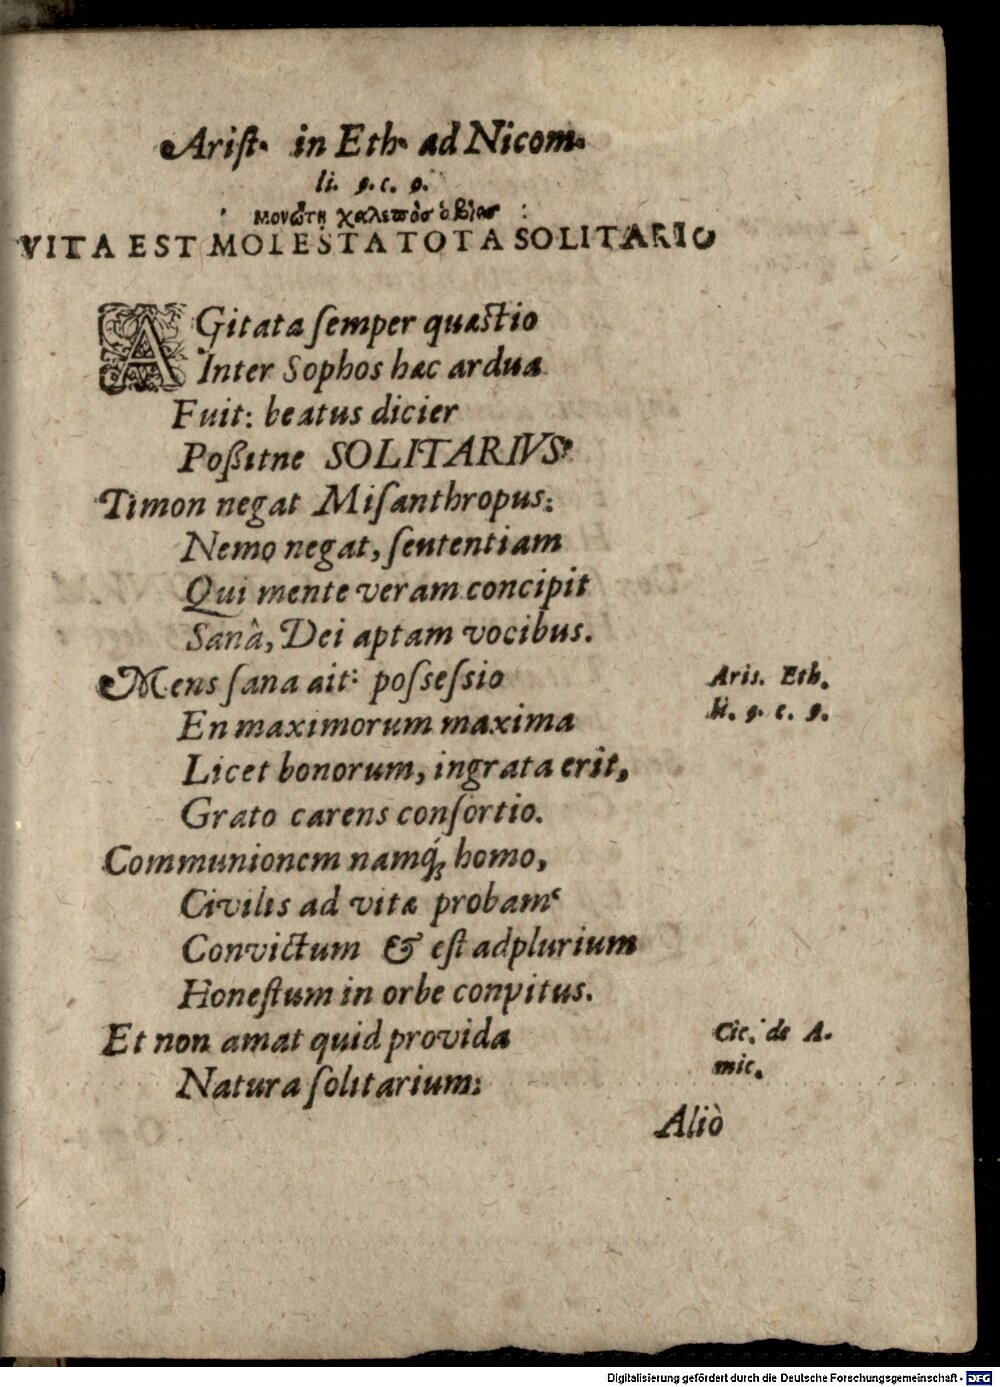 Arist. in Eth. ad Nicom.
li. 9. c. 9.
μονώτῃ χαλεπὸσ ὁ βίοσ :
VITA EST MOLESTA TOTA SOLITARIO
AGitata ſemper quæstio
Inter Sophos hæc ardua
Fuit: beatus dicier
Poßitne SOLITARIVS?
Timon negat Miſanthropus:
Nemo negat, ſententiam
Qui mente veram concipit
Sanâ, Dei aptam vocibus.
Mens ſana ait: poſseſsio
Aris. Eth.
li. 9. c. 9.
En maximorum maxima
Licet bonorum, ingrata erit,
Grato carens conſortio.
Communionem namq́; homo,
Civilis ad vitæ probam
Convictum & eſt ad plurium
Honeſtum in orbe conpitus.
Et non amat quid provida
Cic. de A-
mic.
Natura ſolitarium:
Aliò
Digitalisierung gefördert durch die Deutsche Forschungsgemeinschaft - DFG